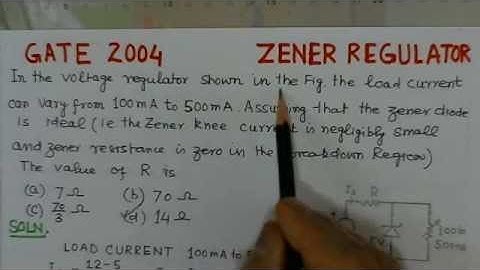 GATE 2004 ZENER REGULATOR
In the voltage regulator shown in the Fig. the load current
can vary from 100mA to 500mA. Assuming that the zener diode
is ideal (ie the Zener knee current is negligibly small
and zener resistance is zero in the Breakdown Region)
The value of R is
(a) 7Ω (b) 70Ω
(c) 70/3 Ω (d) 14Ω
R
SOLN.
LOAD CURRENT 100mA to 5
12-5